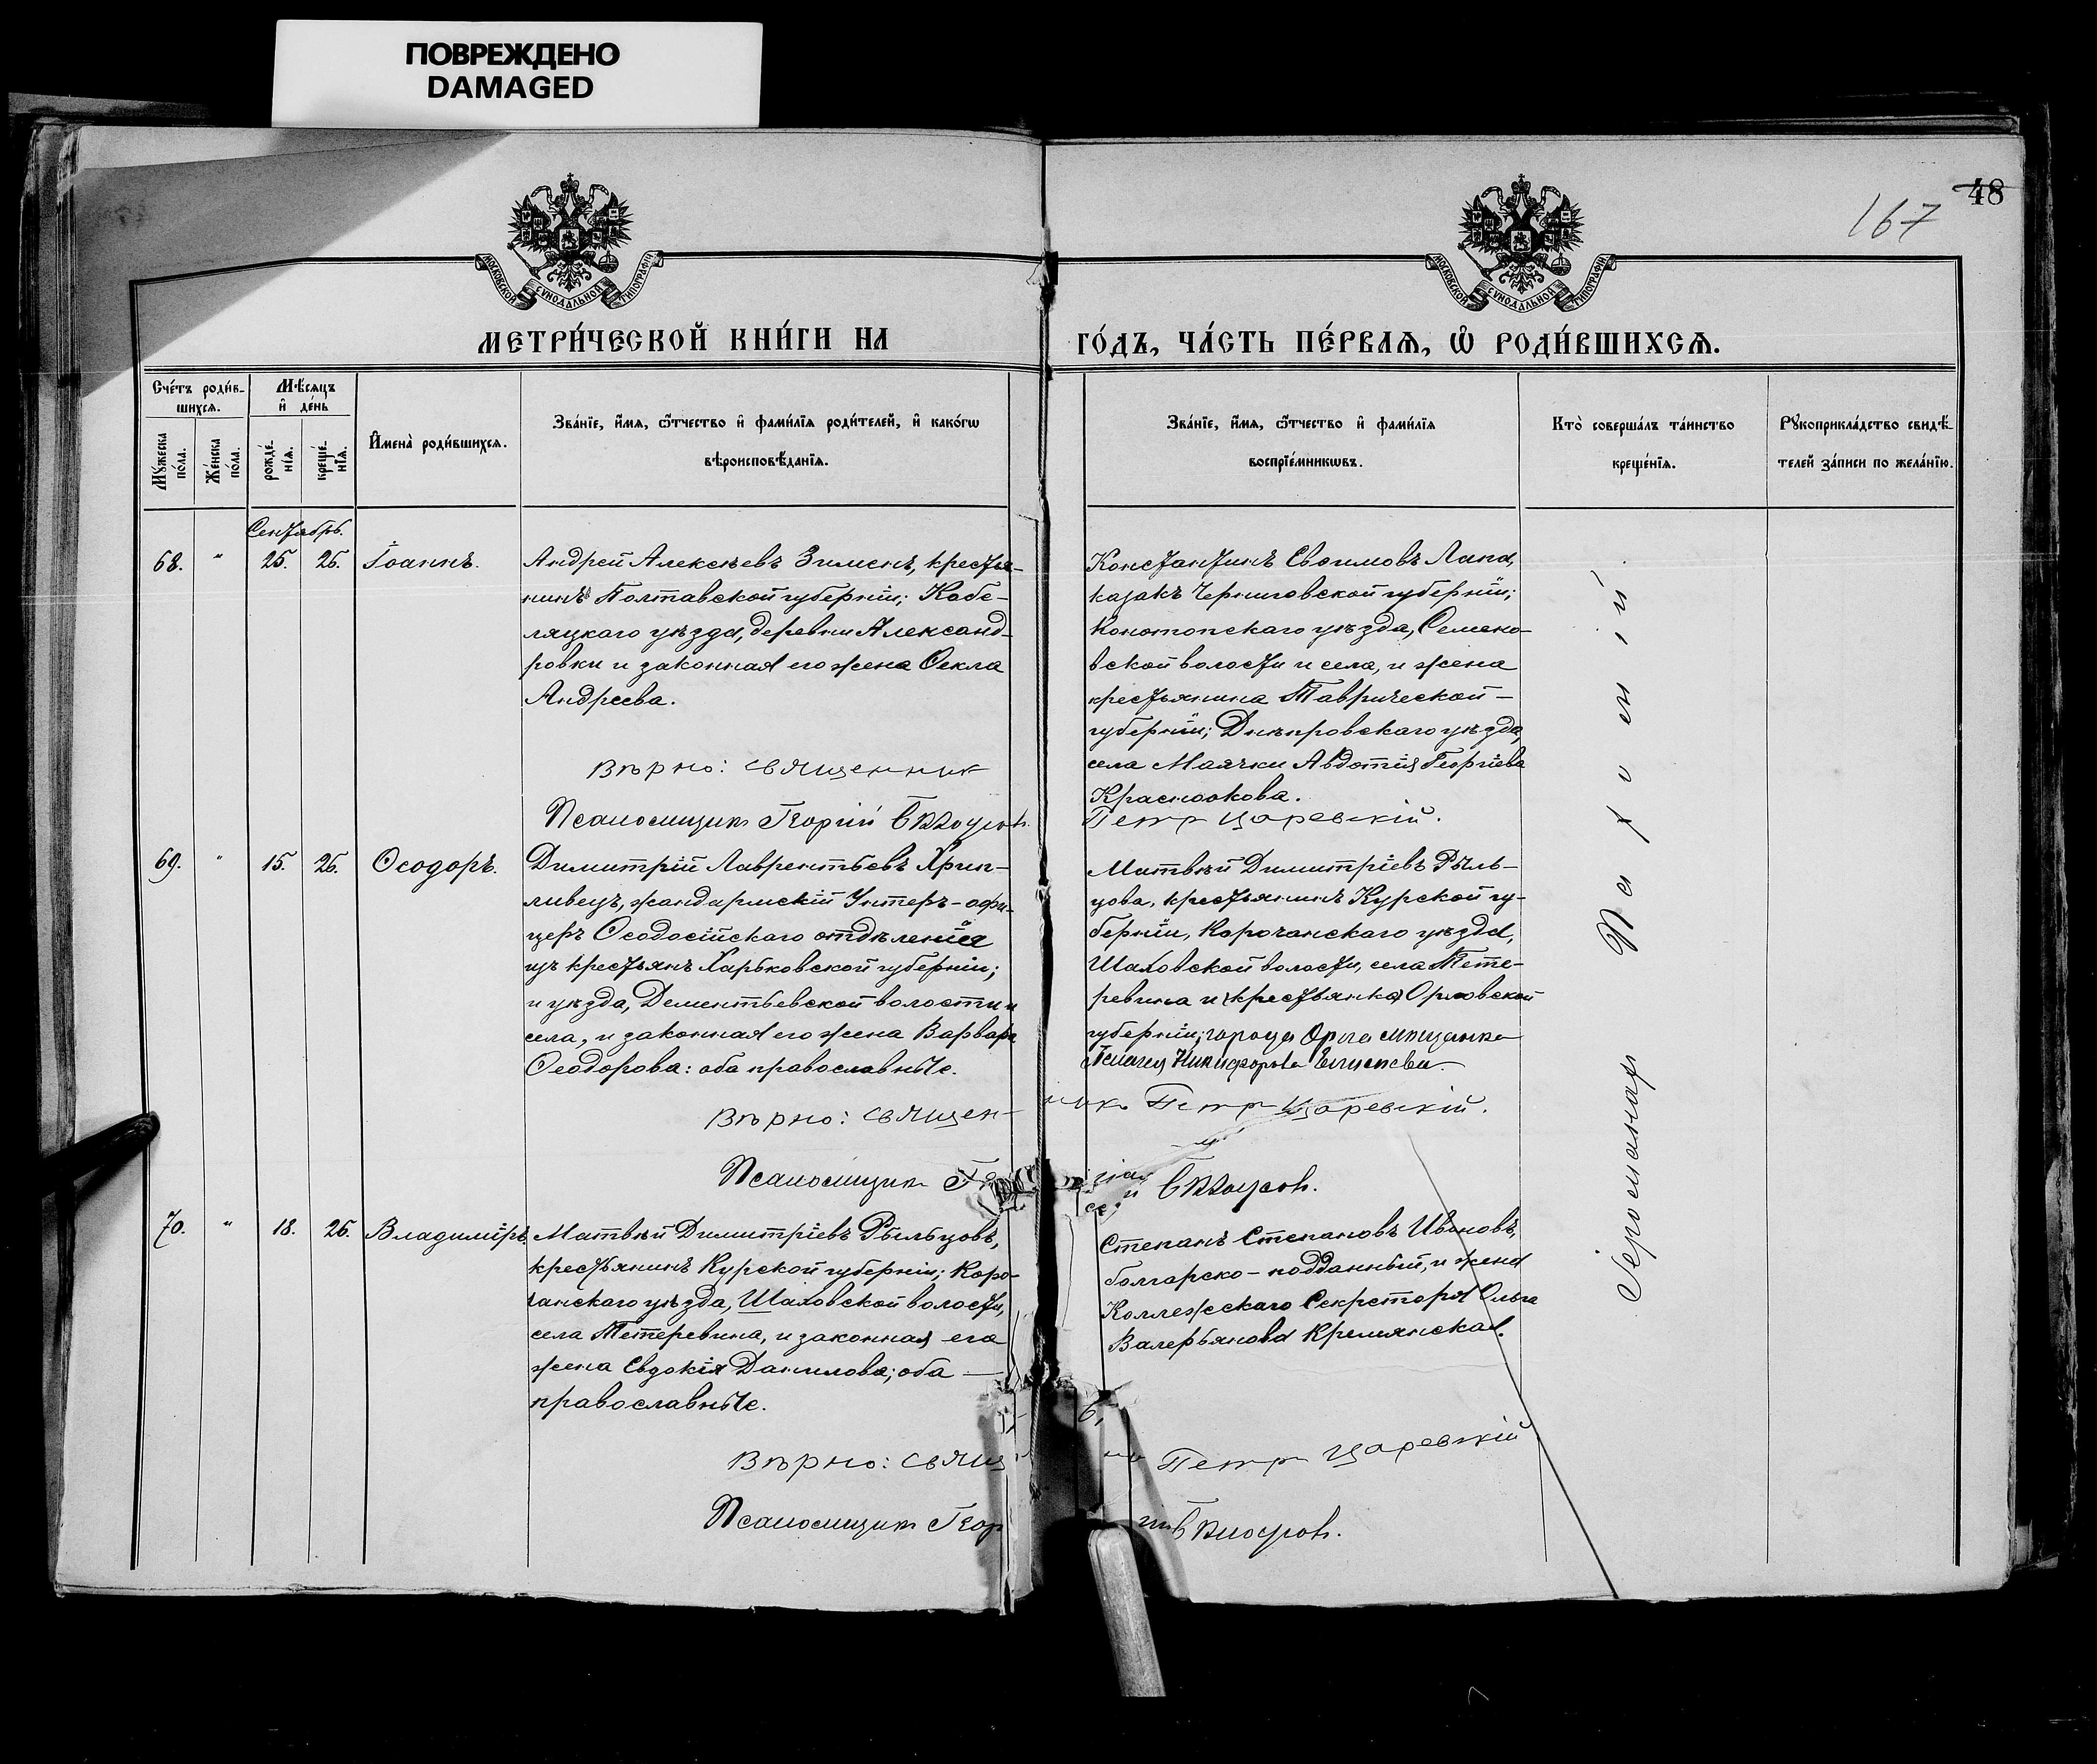 ПОВРЕЖДЕНО
DAMAGED
48
167
МОСКОВСКОЙ СѴНОДАЛЬНОЙ ТИПОГРАФІИ
МОСКОВСКОЙ СѴНОДАЛЬНОЙ ТИПОГРАФІИ
МЕТРИ́ЧЕСКОЙ КНИ́ГИ НА
ГО́ДЪ, ЧА́СТЬ ПЕ́РВАѦ, Ѽ РОДИ́ВШИХСѦ.
Сче́тъ роди́в-
шихсѧ.
Мѣ́сѧцъ
и҆ де́нь
Мꙋ́жеска
по́ла.
Же́нска
по́ла.
рожде́-
нїѧ.
креще́-
нїѧ.
И҆мена̀ роди́вшихсѧ.
Зва́нїе, и҆́мѧ, ѻ҆́тчество и҆ фами́лїѧ роди́телей, и҆ како́гѡ
вѣроисповѣ́данїѧ.
Зва́нїе, и҆́мѧ, ѻ҆́тчество и҆ фами́лїѧ
воспрїе́мникѡвъ.
Кто̀ соверша́лъ та́инство
креще́нїѧ.
Рꙋкоприкла́дство свидѣ́-
телей за́писи по жела́нїю.
Сентябрь.
68. " 25. 26. Іоаннъ.
Андрей Алексѣевъ Зименъ, крестья-
нинъ Полтавской губерніи; Кобе-
ляцкаго уѣзда, деревни Александ-
ровки и законная его жена Ѳекла
Андреева.
Вѣрно: священник
Псаломщикъ Георгій
Константинъ Евѳимовъ Лапа,
казакъ Черниговской губерніи;
Конотопскаго уѣзда, Семено-
вской волости и села, и жена
крестьянина Таврической-
губерніи; Днѣпровскаго уѣзда,
села Маячки Авдотія Георгіева
Краснокова.
Петр Царевскій.
69. " 15. 26. Ѳеодоръ.
Димитрій Лаврентьевъ Хрип-
ливецъ, жандармскій Унтеръ-офи-
церъ Ѳеодосійскаго отдѣленія
изъ крестьянъ Харьковской губерніи;
и уѣзда, Дементьевской волости и
села, и законная его жена Варвара
Ѳеодорова: оба православные.
Вѣрно: священ-
Псаломщикъ Ге
Матвѣй Димитріевъ Рыль-
цова, крестьянинъ Курской гу-
берніи, Корочанскаго уѣзда,
Шаховской волости, села Тете-
ревина и крестьянка Орловской
губерніи; города Орла мѣщанка
Пелагея Никифорова
никъ Петр Царевскій.
70. " 18. 26. Владиміръ.
Матвѣй Димитріевъ Рыльцовъ,
крестьянинъ Курской губерніи; Коро-
чанскаго уѣзда, Шаховской волости,
села Тетеревина, и законная его
жена Евдокія Данилова; оба —
православные.
Вѣрно: свящ
Псаломщикъ Геор
Степанъ Степановъ Ивановъ,
болгарско-подданный, и жена
Коллежскаго Секретаря Ольга
Валерьянова Кремянская.
Петр Царевскій
Іеромонах Пафоній.